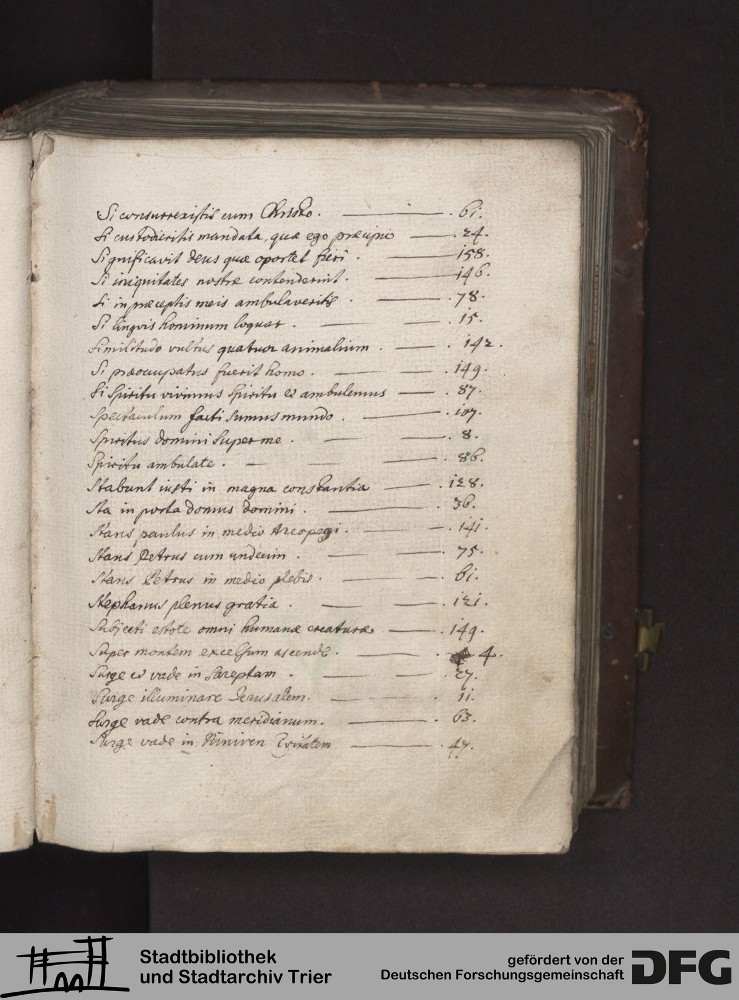 Si consurrexistis cum Christo. — 61.
Si custodieritis mandata, quæ ego præcipio — 24.
Significavit deus quæ oportet fieri. — 158.
Si iniquitates nostræ contenderint. — 146.
Si in præceptis meis ambulaveritis. — 78.
Si linguis hominum loquar. — 15.
Similitudo vultus quatuor animalium. — 142.
Si præoccupatus fuerit homo. — 149.
Si Spiritu vivimus Spiritu et ambulemus — 87.
Spectaculum facti sumus mundo. — 107.
Spiritus domini super me. — 8.
Spiritu ambulate. — 86.
Stabunt iusti in magna constantia — 128.
Sta in porta domus domini. — 36.
Stans paulus in medio Areopagi. — 141.
Stans Petrus cum undecim. — 75.
Stans Petrus in medio plebis. — 61.
Stephanus plenus gratia. — 121.
Subjecti estote omni humanæ creaturæ — 149.
Super montem excelsum ascende. — 4.
Surge et vade in Sareptam. — 27.
Surge illuminare Jerusalem. — 11.
Surge vade contra meridianum. — 63.
Surge vade in Niniven Civitatem — 47.
Stadtbibliothek
und Stadtarchiv Trier
gefördert von der
Deutschen Forschungsgemeinschaft
DFG